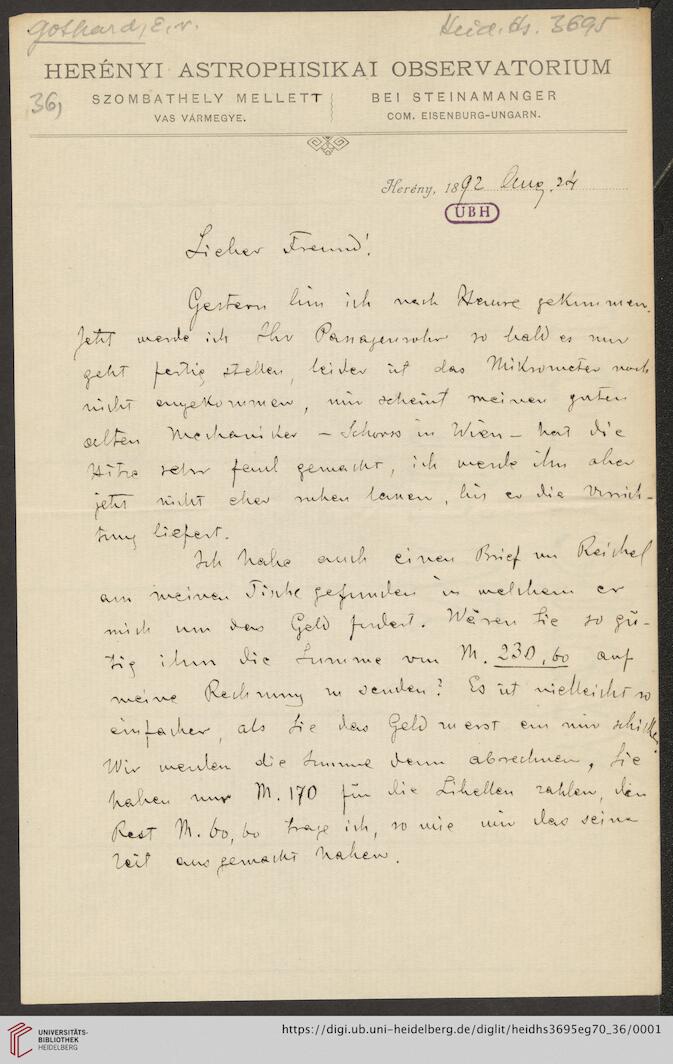 Gothard, E. v.
Heid. Hs. 3695
36,
HERÉNYI ASTROPHISIKAI OBSERVATORIUM
SZOMBATHELY MELLETT
VAS VÁRMEGYE.
BEI STEINAMANGER
COM. EISENBURG-UNGARN.
Herény, 1892 Aug. 24
UBH
Lieber Freund!
Gestern bin ich nach Hause gekommen.
Jetzt werde ich Ihr Passagenrohr so bald es nur
geht fertig stellen, leider ist das Mikrometer noch
nicht angekommen, mir scheint meinen guten
alten Mechaniker – in Wien – hat die
Hitze sehr faul gemacht, ich werde ihn aber
jetzt nicht eher ruhen lassen, bis er die Vorrich-
tung liefert.
Ich habe auch einen Brief von Reichel
am meinen Tische gefunden in welchem er
mich um das Geld fordert. Wären Sie so gü-
tig ihm die Summe von M. 230,60 auf
meine Rechnung zu senden? Es ist vielleicht so
einfacher, als Sie das Geld zuerst an mir schicken.
Wir werden die Summe dann abrechnen, Sie
haben nur M. 170 für die Libellen zahlen, den
Rest M. 60,60 trage ich, so wie wir das seine
Zeit ausgemacht haben.
UNIVERSITÄTS-
BIBLIOTHEK
HEIDELBERG
https://digi.ub.uni-heidelberg.de/diglit/heidhs3695eg70_36/0001